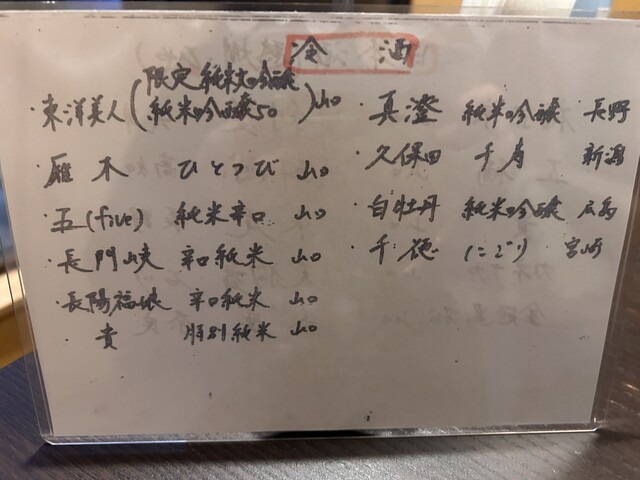 冷 酒
・東洋美人 (限定 純米大吟醸
純米吟醸50) 山口
・雁木 ひとつび 山口
・五(five) 純米辛口 山口
・長門峡 辛口純米 山口
・長陽福娘 辛口純米 山口
・貴 特別純米 山口
・真澄 純米吟醸 長野
・久保田 千寿 新潟
・白牡丹 純米吟醸 広島
・千徳 にごり 宮崎